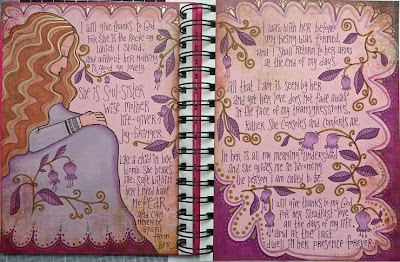 I will give thanks to God
for She is the Rock on
which I stand,
and without her nothing
is good or lovely.
She is Soul-Sister
wise mother
life-giver
joy-bringer.
Like a child in the
womb She bears
me safe within
her. I need have
no fear,
and can
never be
apart
from
her.
I was with her before
my being was formed,
and I shall return to her arms
at the end of my days.
all that I am is seen by her
and yet her love does not fade away
in the face of my transgressions,
rather She Consoles and Comforts me.
In her is all my meaning understood
and She guides me in becoming
the person I am called to be.
I will give thanks to my God
for her Steadfast love
all the days of my life
and at the last
dwell in her presence forever